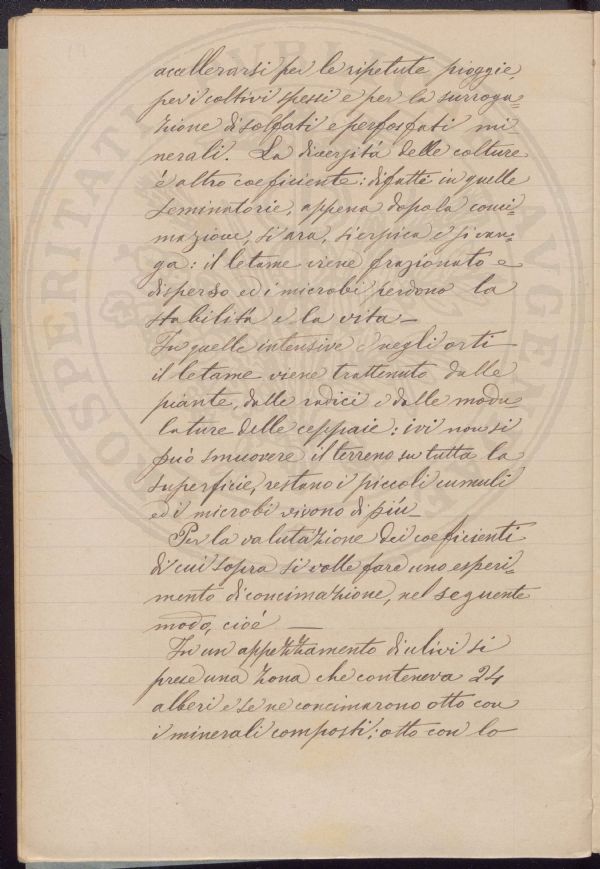 accellerarsi per le ripetute pioggie,
per i coltivi spessi e per la surroga=
zione di solfati e perfosfati mi
nerali. La diversitá delle colture
é altro coeficiente: difatti in quelle
seminatorie, appena dopo la conci=
mazione, si ara, si erpica e si van=
ga: il letame viene frazionato e
disperso ed i microbi perdono la
stabilitá e la vita —
In quelle intensive e negli orti
il letame viene trattenuto dalle
piante, dalle radici e dalle modu=
lature delle ceppaie: ivi non si
puó smuovere il terreno su tutta la
superficie, restano i piccoli cumuli
ed i microbi vivono di piú —
Per la valutazione dei coefficienti
di cui sopra si volle fare uno esperi=
mento di concimazione, nel seguente
modo, cioé —
In un appezzamento di ulivi si
prese una zona che conteneva 24
alberi e se ne concimarono otto con
i minerali composti; otto con lo
PROSPERITATI PUBLICAE AUGENDAE